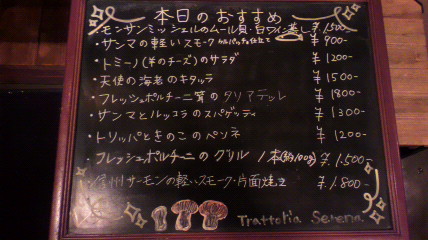 本日のおすすめ
モンサンミッシェルのムール貝・白ワイン蒸し ¥1,500-
・サンマの軽いスモーク カルパッチョ仕立て ¥900-
・トミーノ(羊のチーズ)のサラダ ¥1200-
・天使の海老のキタッラ ¥1500-
・フレッシュポルチーニ茸のタリアテッレ ¥1800-
・サンマとルッコラのスパゲッティ ¥1300-
・トリッパときのこのペンネ ¥1200-
・フレッシュポルチーニのグリル 1本(約100g) ¥1,500-
・信州サーモンの軽いスモーク・片面焼き ¥1,800-
Trattoria Serena